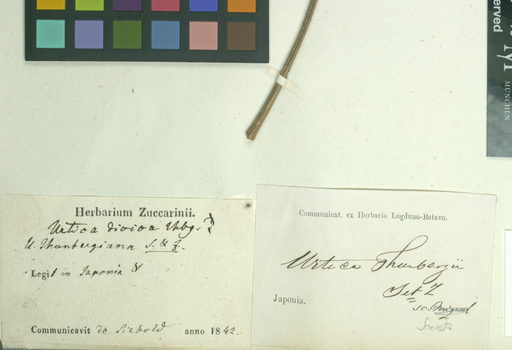 served
MÜNCHEN
Herbarium Zuccarinii.
Urtica dioica Thbg. ?
U. Thunbergiana S. & Z.
Legit in Japonia
Communicavit de Siebold anno 1842.
Communicat. ex Herbario Lugduno-Batavo.
Urtica Thunbergii
S et Z
Japonia.